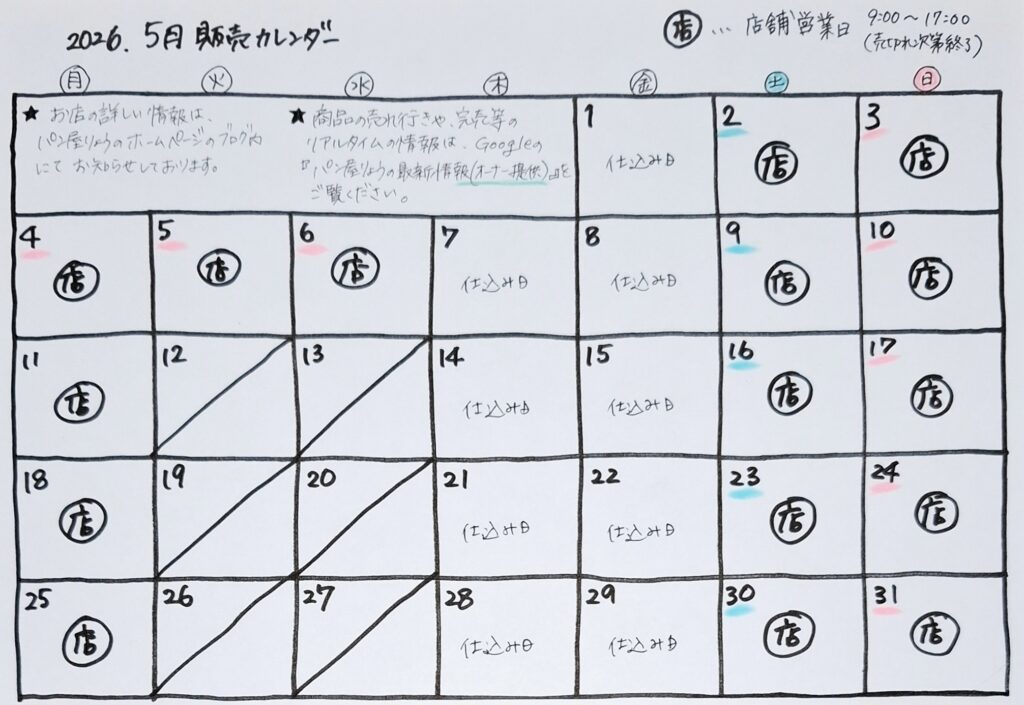 2026. 5月 販売カレンダー
店 … 店舗営業日 9:00〜17:00
(売切れ次第終了)
月 火 水 木 金 土 日
★ お店の詳しい情報は、
パン屋りょうのホームページのブログ内
にて お知らせしております。
★ 商品の売れ行きや、完売等の
リアルタイムの情報は、Googleの
『パン屋りょうの最新情報(オーナー提供)』を
ご覧ください。
1 2 3
仕込み日 店 店
4 5 6 7 8 9 10
店 店 店 仕込み日 仕込み日 店 店
11 12 13 14 15 16 17
店 仕込み日 仕込み日 店 店
18 19 20 21 22 23 24
店 仕込み日 仕込み日 店 店
25 26 27 28 29 30 31
店 仕込み日 仕込み日 店 店